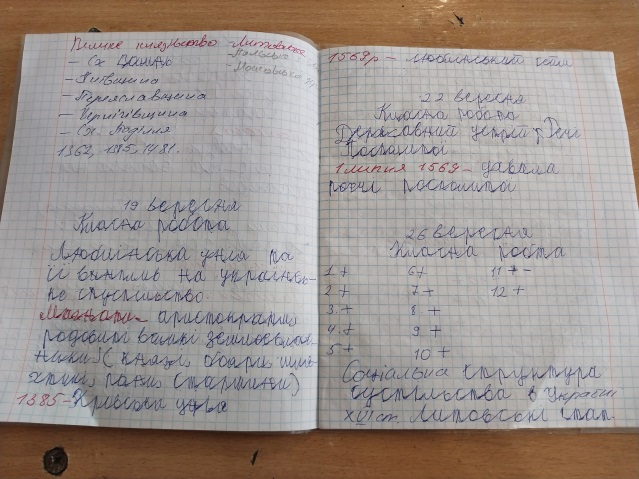 Велике князівство Литовське
- Сх Волинь
- Польська
- Московська
- Київщина
- Переяславщина
- Чернігівщина
- Сх. Поділля
1362, 1385, 1481.
19 вересня
Класна робота
Люблінська унія та
її вплив на україньсь-
ке суспільство
Магнати - аристократия
родовиті великі землевлас-
ники (князі, бояри, шля-
хтичі, пани, старшини)
1385 - Кревська унія
1569р - Люблінський
22 вересня
Класна робота
Державний устрій Речі
Посполитої
1 липня 1569 - давила
речі посполита
26 вересня
Класна робота
1 + 6 + 11 + -
2 + 7 + 12 +
3. + 8 +
4. + 9 +
5 + 10 +
Соціальна структура
суспільства в Україні
XVI ст. Литовські стат